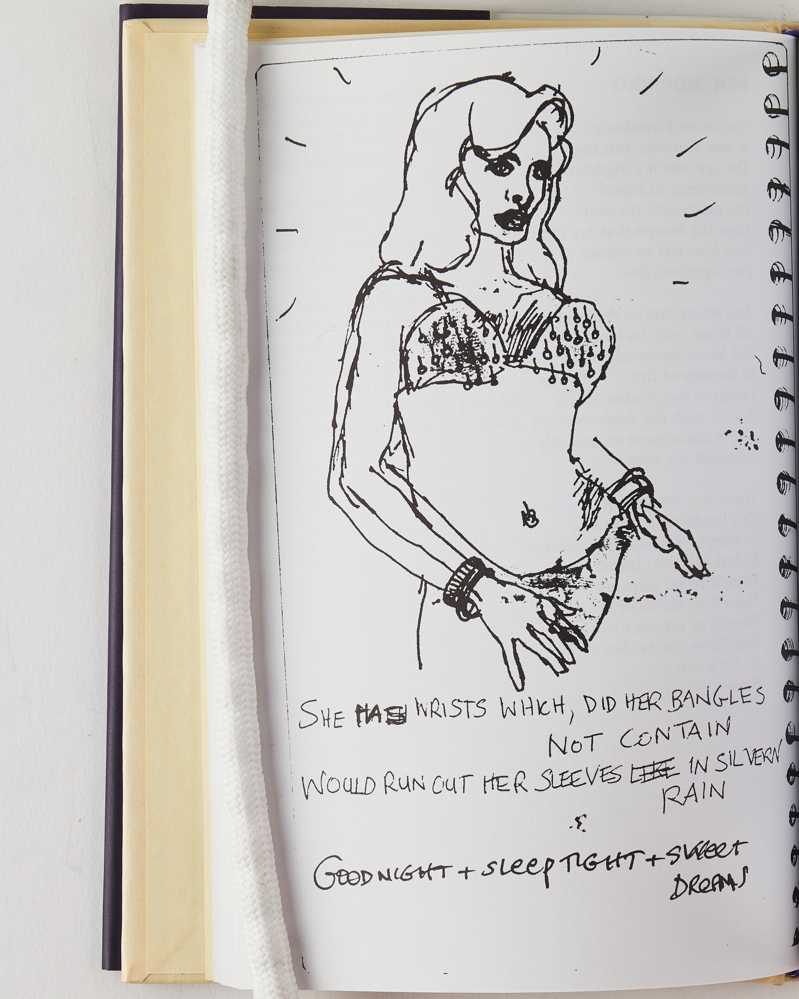 SHE HAS WRISTS WHICH, DID HER BANGLES
NOT CONTAIN
WOULD RUN OUT HER SLEEVES LIKE IN SILVERN
RAIN
&
GOODNIGHT + SLEEP TIGHT + SWEET
DREAMS